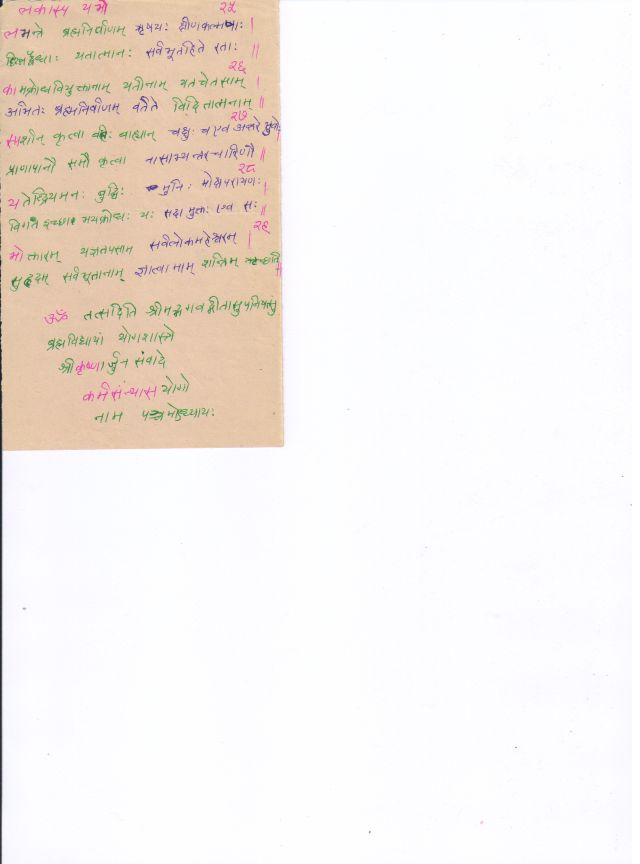 लकास्प यमो २५
लभन्ते ब्रह्मनिर्वाणम् ऋषयः क्षीणकल्मषाः |
छिन्नद्वैधाः यतात्मानः सर्वभूतहिते रताः ||
२६
कामक्रोधवियुक्तानाम् यतीनाम् यतचेतसाम् |
अभितः ब्रह्मनिर्वाणम् वर्तते विदितात्मनाम् ||
२७
स्पर्शान् कृत्वा बहिः बाह्यान् चक्षुः च एव अन्तरे भ्रुवोः |
प्राणापानौ समौ कृत्वा नासाभ्यन्तरचारिणौ ||
२८
यतेन्द्रियमनः बुद्धिः मुनिः मोक्षपरायणः |
विगतइच्छाभयक्रोधः यः सदा मुक्तः एव सः ||
२९
भोक्तारम् यज्ञतपसाम् सर्वलोकमहेश्वरम् |
सुहृदम् सर्वभूतानाम् ज्ञात्वा माम् शान्तिम् ऋच्छति ||
ॐ तत्सदिति श्रीमद्भगवद्गीतासुपनिषत्सु
ब्रह्मविद्यायां योगशास्त्रे
श्रीकृष्णार्जुन संवादे
कर्मसंन्यास योगो
नाम पञ्चमोऽध्यायः